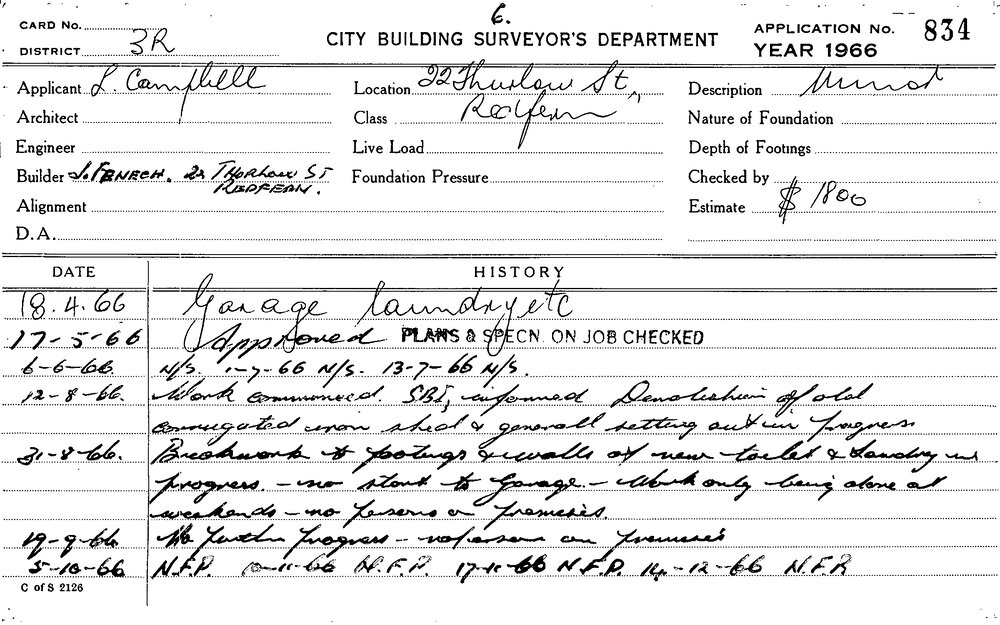 6.
CARD No.
DISTRICT 3R
CITY BUILDING SURVEYOR'S DEPARTMENT
APPLICATION No. 834
YEAR 1966
Applicant L. Campbell
Architect
Engineer
Builder J. FENECH. 22 THURLOW ST
REDFERN.
Alignment
D.A.
Location 22 Thurlow St,
Class Redfern
Live Load
Foundation Pressure
Description
Nature of Foundation
Depth of Footings
Checked by
Estimate $ 1800
DATE HISTORY
18.4.66 Garage laundry etc
17-5-66 Approved PLANS & SPECN. ON JOB CHECKED
6-6-66. N/S. 1-7-66 N/S. 13-7-66 N/S.
12-8-66. Work commenced. informed Demolishion of old
corrugated iron shed & generall setting out in progress
31-8-66. Brickwork to footings & walls of new toilet & Laundry in
progress. - no start to Garage. - Work only being done at
weekends - no persons on premises.
19-9-66 No further progress - no person on premises
5-10-66 N.F.P. 10-11-66 N.F.P. 17-11-66 N.F.P. 14-12-66 N.F.P.
C of S 2126